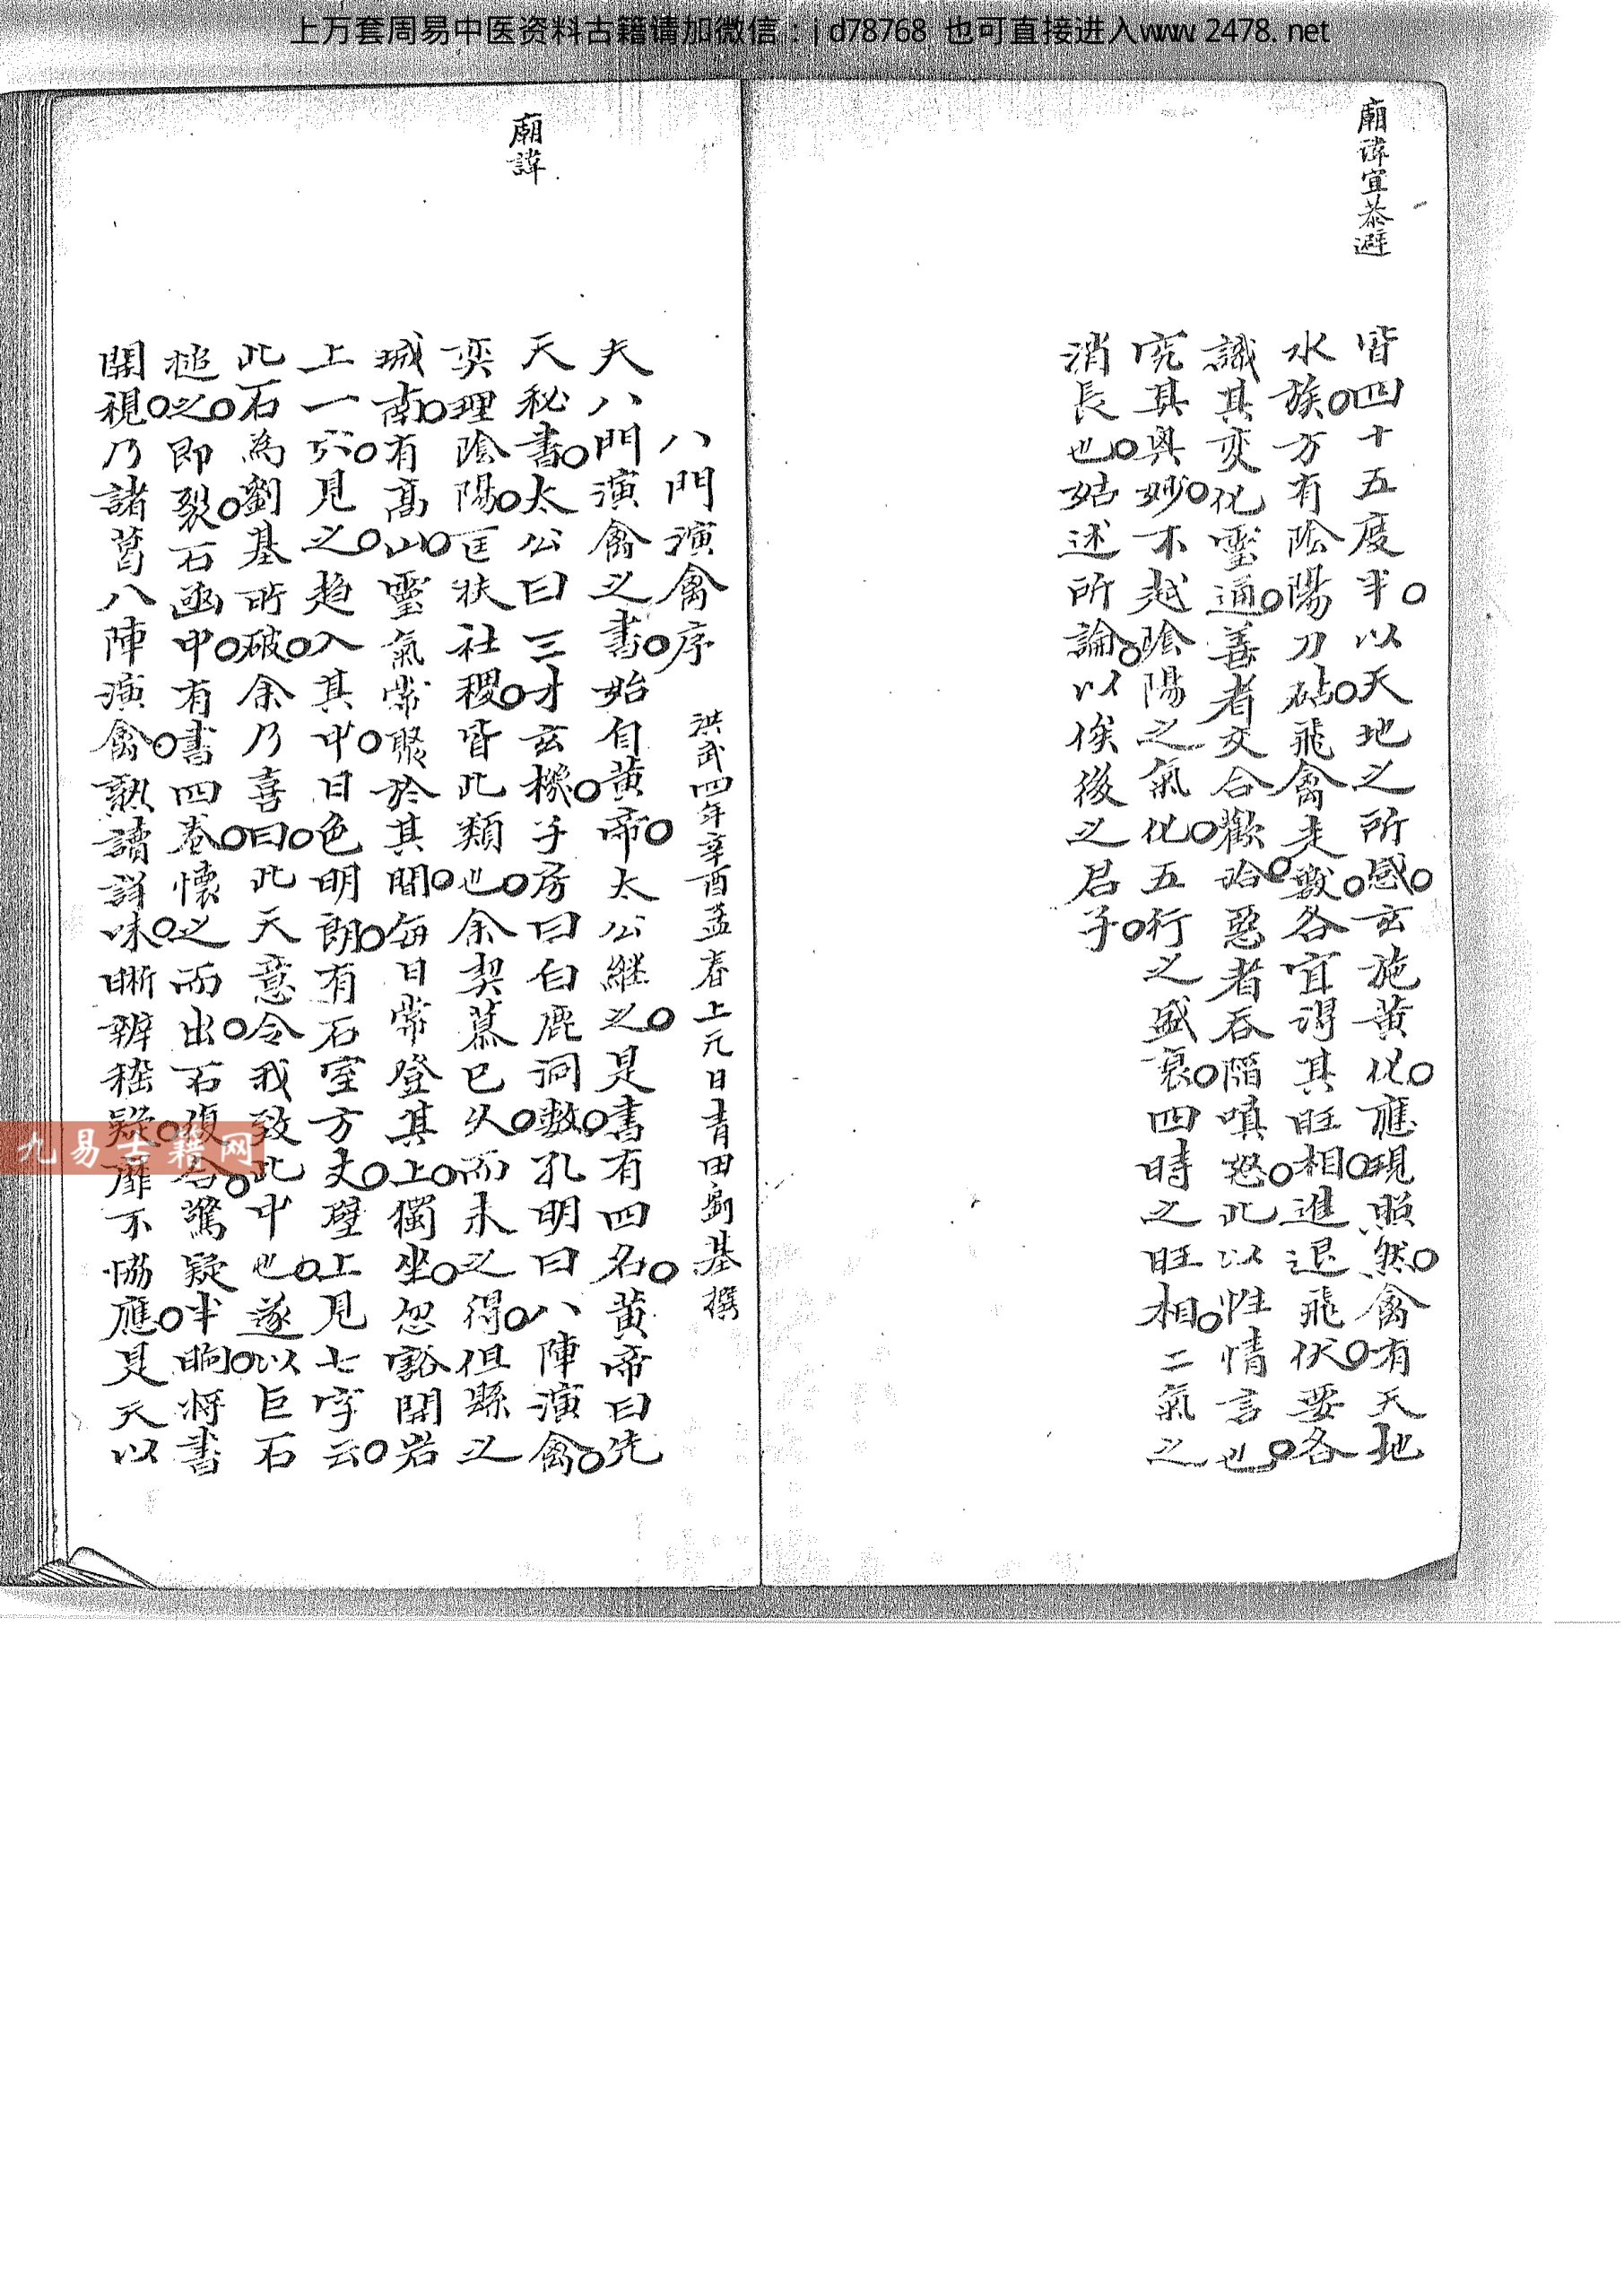 上万套周易中医资料古籍请加微信：id78768 也可直接进入www.2478.net
廟諱宜恭避
皆四十五度半以天地之所感玄施黃化應現照然禽有天地
水族方有陰陽刀砧飛禽走獸各宜得其旺相進退飛伏要各
識其變化靈通善者交合歡洽惡者吞陷嗔怒此以性情言也
究其奧妙不越陰陽之氣化五行之盛衰四時之旺相二氣之
消長也姑述所論以俟後之君子
廟諱
八門演禽序 洪武四年辛酉孟春上元日青田劉基撰
夫八門演禽之書始自黃帝太公継之是書有四名黃帝曰先
天秘書太公曰三才玄機子房曰白鹿洞數孔明曰八陣演禽
奕理陰陽匡扶社稷皆此類也余契慕已久而未之得但縣之
城南有高山靈氣常聚於其間每日常登其上獨坐忽豁開岩
上一穴見之趋入其中日色明朗有石室方丈壁上見七字云
此石為劉基所破余乃喜曰此天意令我致此中也遂以巨石
槌之即裂石函中有書四卷懷之而出石復合驚疑半晌将書
開視乃諸葛八陣演禽熟讀詳味晰辨稽疑靡不恊應是天以
九易古籍网